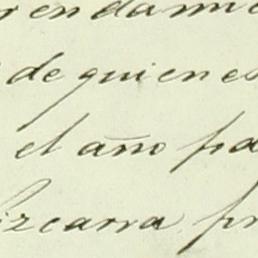 rendamie
de quienes
el año pa
izcarra pr